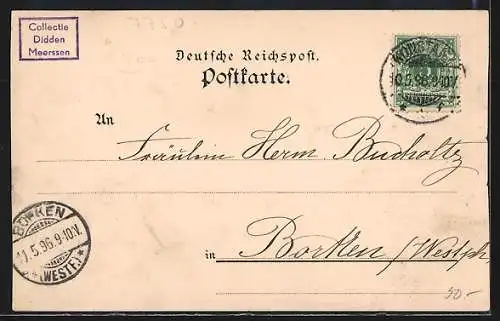 Collectie
Didden
Meerssen
Deutsche Reichspost.
Postkarte.
10.5.96.9-10V.
An
Fräulein Herm. Bucholtz
in Borken /Westph
BORKEN
11.5.96.9-10.V.
(WESTF.)
50.-